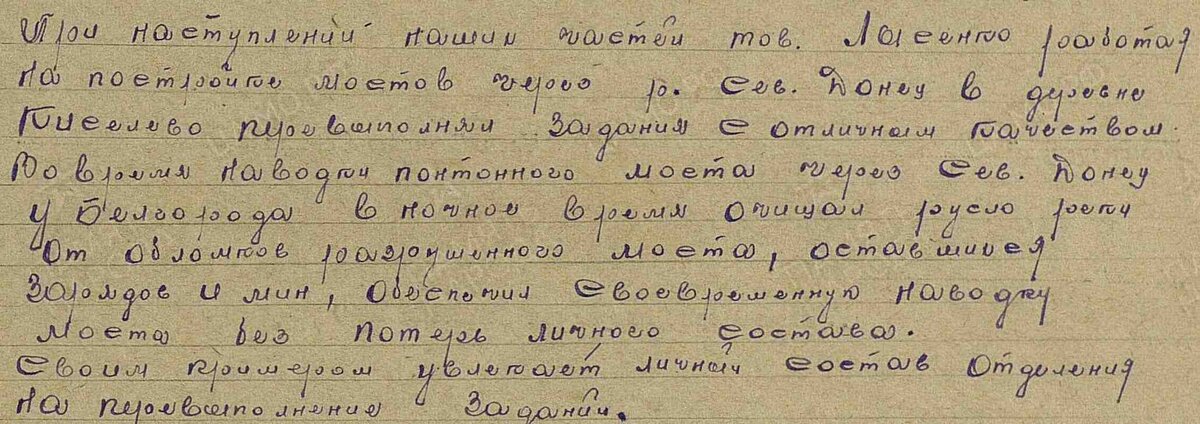 При наступлений наших частей тов. Лысенко работая
на постройке мостов через р. Сев. Донец в деревне
Киселево перевыполнял задания с отличным качеством.
Во время наводки понтонного моста через Сев. Донец
у Белгорода в ночное время очищал русло реки
от обломков разрушенного моста, оставшихся
зарядов и мин, обеспечил своевременную наводку
моста без потерь личного состава.
Своим примером увлекает личный состав отделения
на перевыполнение заданий.